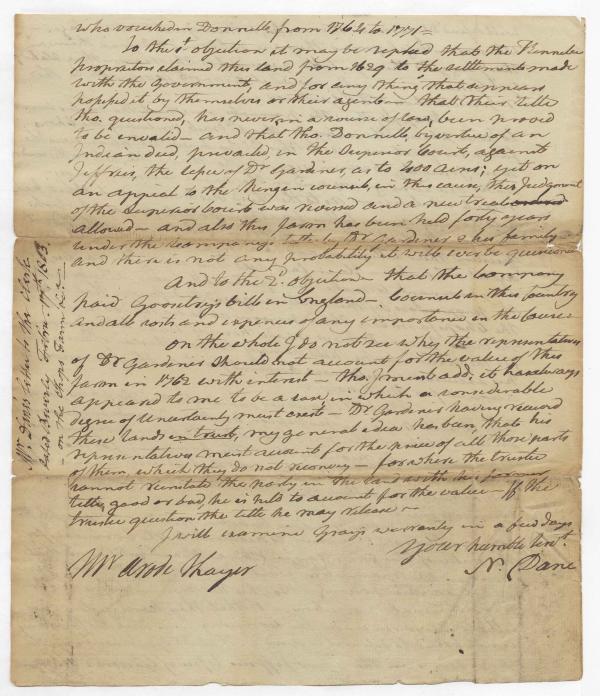 who vouched in Donnell, from 1764 to 1771 =
To the 1st objection it may be replied that the Kennebec
proprietors claimed this land from 1629 to the settlements made
with the Government, and for any thing that appears
possessed it by themselves or their agents — that their title
tho. questioned, has never, in a course of law, been proved
to be invalid — And that tho. Donnell by virtue of an
Indian deed, prevailed, in the Superior Court, against
Jeffries, the lessee of Dr. Gardiner, as to 400 acres; yet on
an appeal to the King in council, in this cause, this Judgment
of the superior Court was reversed and a new trial
allowed — and also this farm has been held forty years
under the company's title by Dr. Gardiner & his family —
and there is not any probability it will ever be questioned
And to the 2d. objection that the company
paid Goostrey's bills in England — Council in this Country
and all costs and expences of any importance in the cause —
On the whole I do not see why the representatives
of Dr. Gardiner should not account for the value of this
farm in 1762 with interest — tho. I must add, it has always
appeared to me to be a case, in which a considerable
degree of uncertainty must exist — Dr. Gardiner having received
these lands in trust, my general idea has been, that his
representatives must account for the price of all those parts
of them, which they do not reconvey — for where the trustee
cannot reinstate the party in the land with his former
title, good or bad, he is held to account for the value — If the
trustee question the title he may release —
I will examine Gray's warranty in a few days
Your humble Servt.
N. Dane
Mr Thayer
Mr Dane's Letter to the Clerk
dated Beverly 1803
— on the Chops Farm &c —